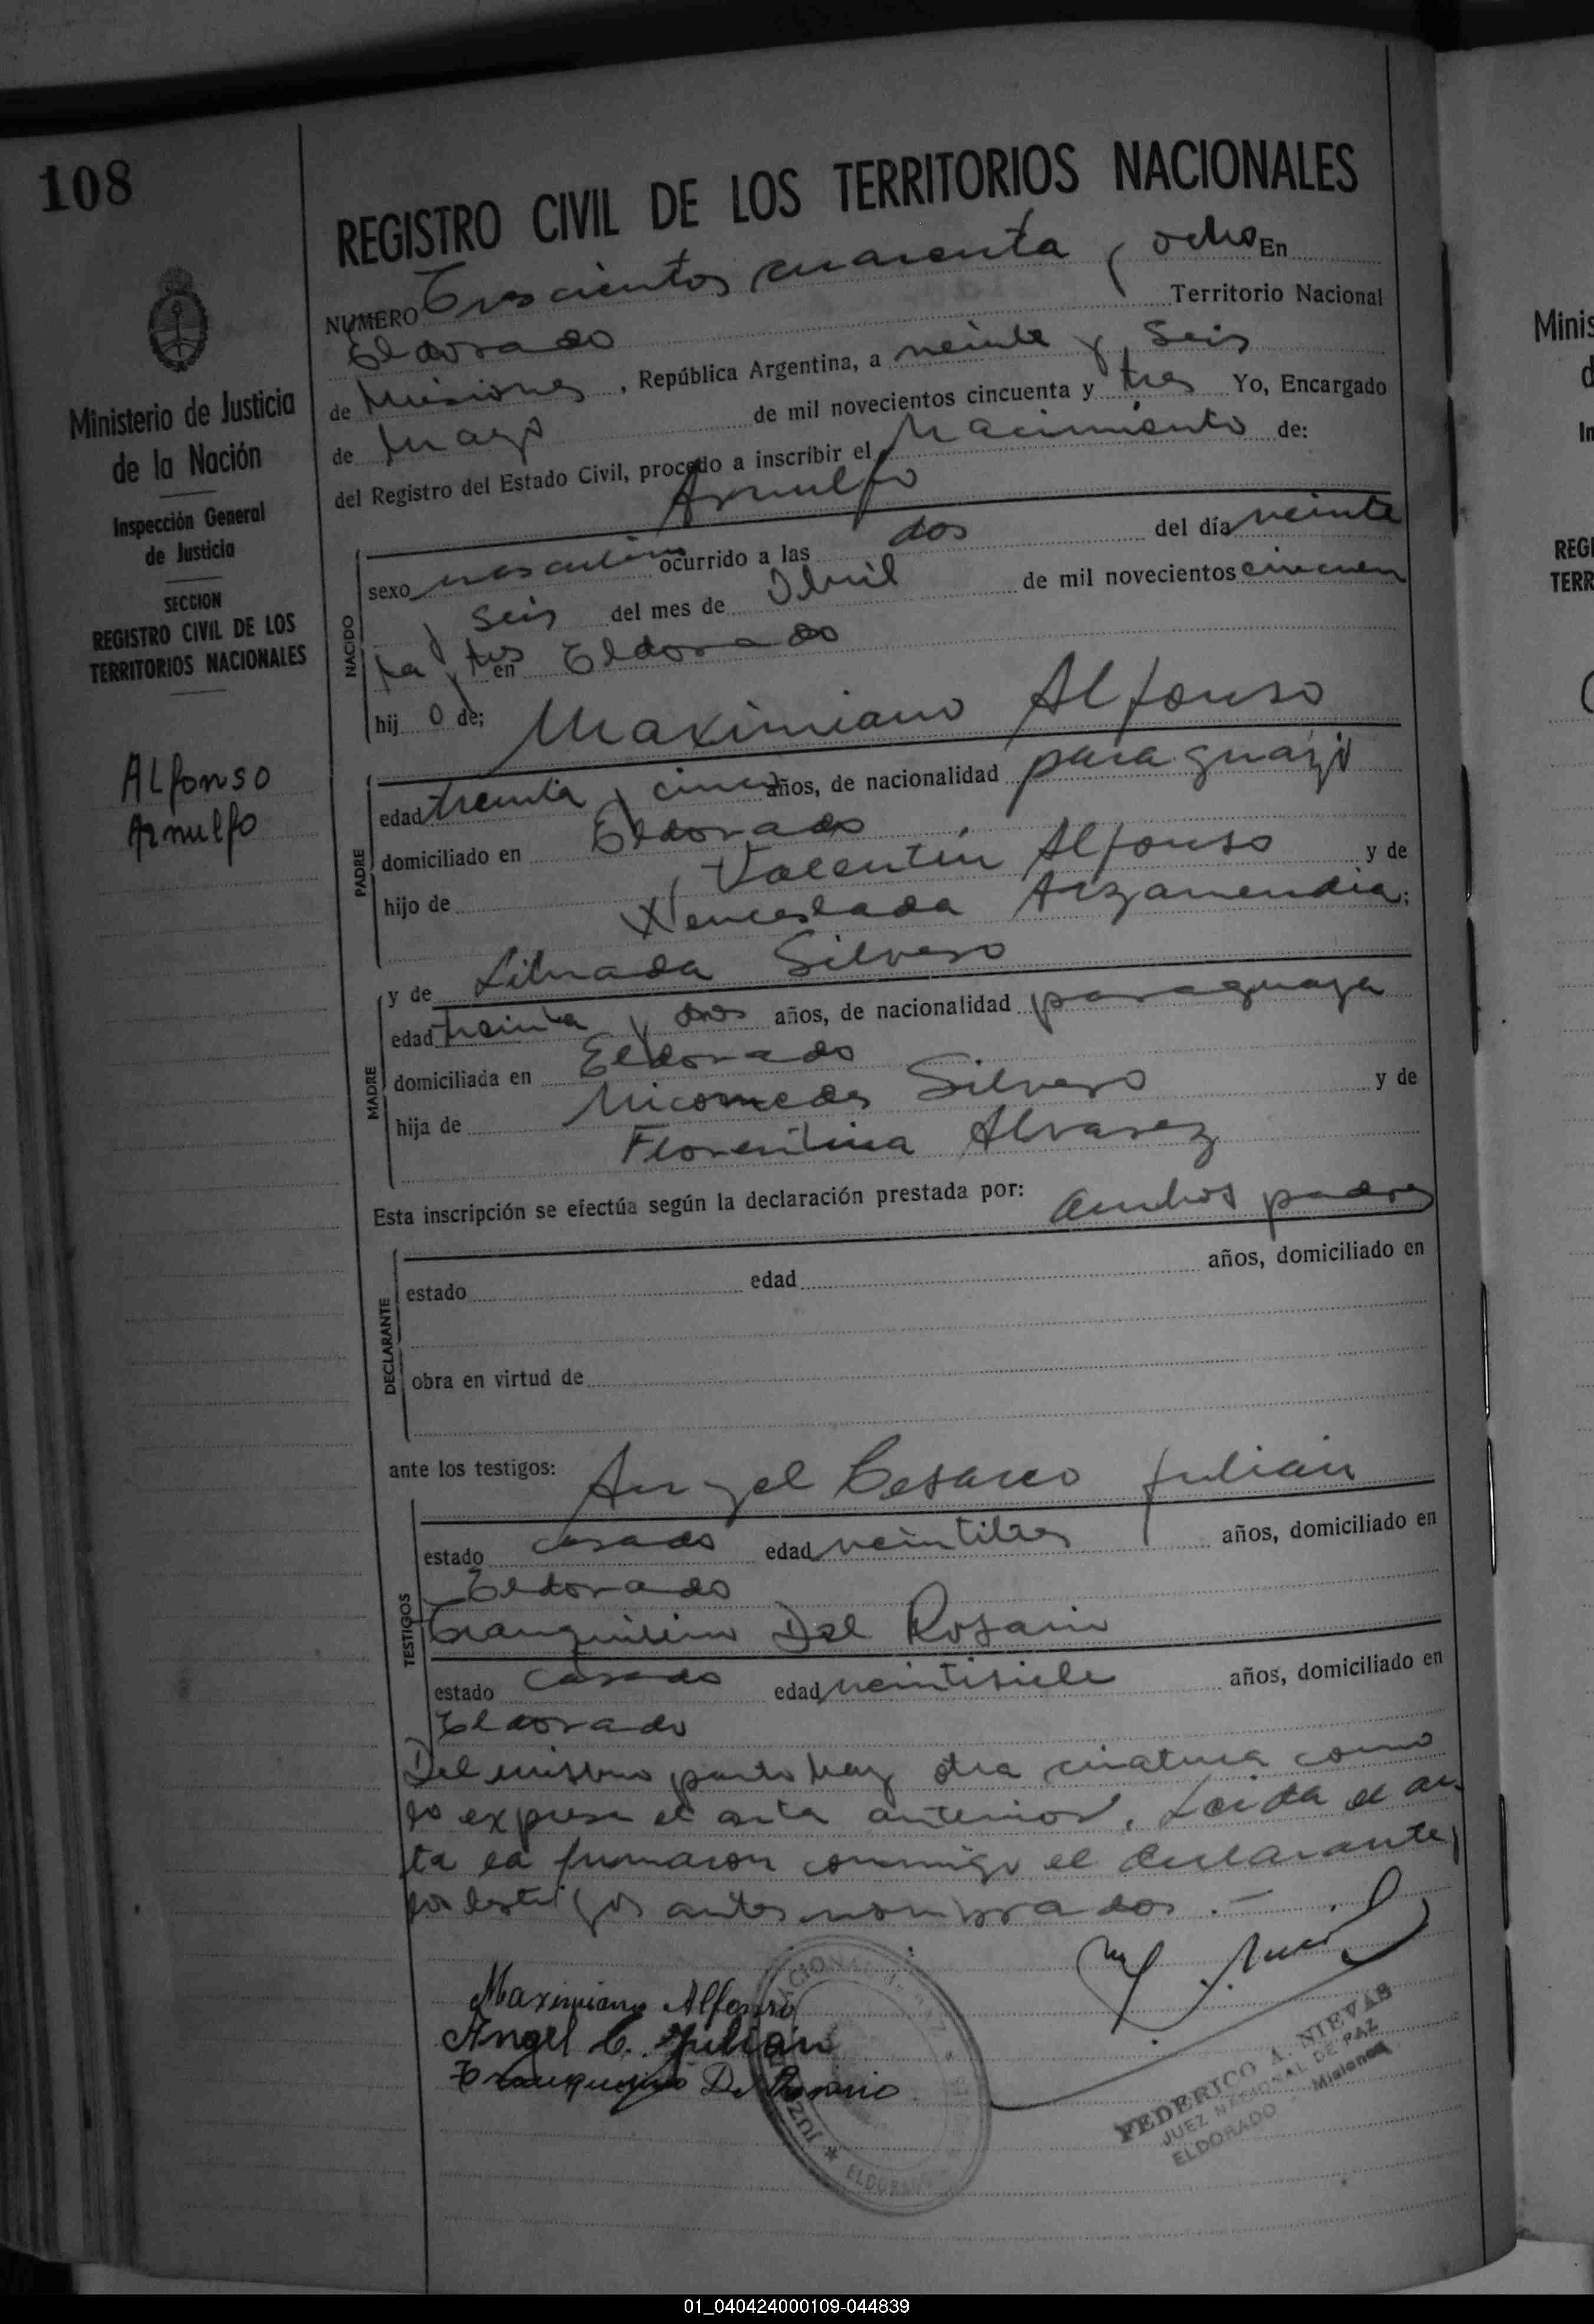 108
REGISTRO CIVIL DE LOS TERRITORIOS NACIONALES
NUMERO Trescientos cuarenta y ocho En
Eldorado Territorio Nacional
de Misiones, República Argentina, a veinte y seis
de Mayo de mil novecientos cincuenta y tres Yo, Encargado
del Registro del Estado Civil, procedo a inscribir el Nacimiento de:
Arnulfo
Ministerio de Justicia
de la Nación
Inspección General
de Justicia
SECCION
REGISTRO CIVIL DE LOS
TERRITORIOS NACIONALES
ALfonso
Arnulfo
NACIDO
sexo masculino ocurrido a las dos del día veinte
y seis del mes de Abril de mil novecientos cincuen
ta y tres en Eldorado
hij o de; Maximiano Alfonso
PADRE
edad treinta y cinco años, de nacionalidad paraguayo
domiciliado en Eldorado
hijo de Valentín Alfonso y de
Wenceslada Arzamendia;
y de Librada Silvero
MADRE
edad treinta y dos años, de nacionalidad paraguaya
domiciliada en Eldorado
hija de Nicomedes Silvero y de
Florentina Alvarez
Esta inscripción se efectúa según la declaración prestada por: ambos padres
DECLARANTE
estado edad años, domiciliado en
obra en virtud de
ante los testigos: Angel Cesareo Julian
TESTIGOS
estado casado edad veintitres años, domiciliado en
Eldorado
Tranquilino Del Rosario
estado casado edad veintisiete años, domiciliado en
Eldorado
Del mismo parto hay otra criatura como
lo expresa el acta anterior, Leida el ac
ta la firmaron conmigo el declarante y
los testigos antes nombrados.—
Maximiano Alfonso
Angel C. Julián
Tranquilino Del Rosario
ELDORADO
FEDERICO A. NIEVAS
JUEZ NACIONAL DE PAZ
ELDORADO - Misiones
Minis
REGI
TERR
01_040424000109-044839